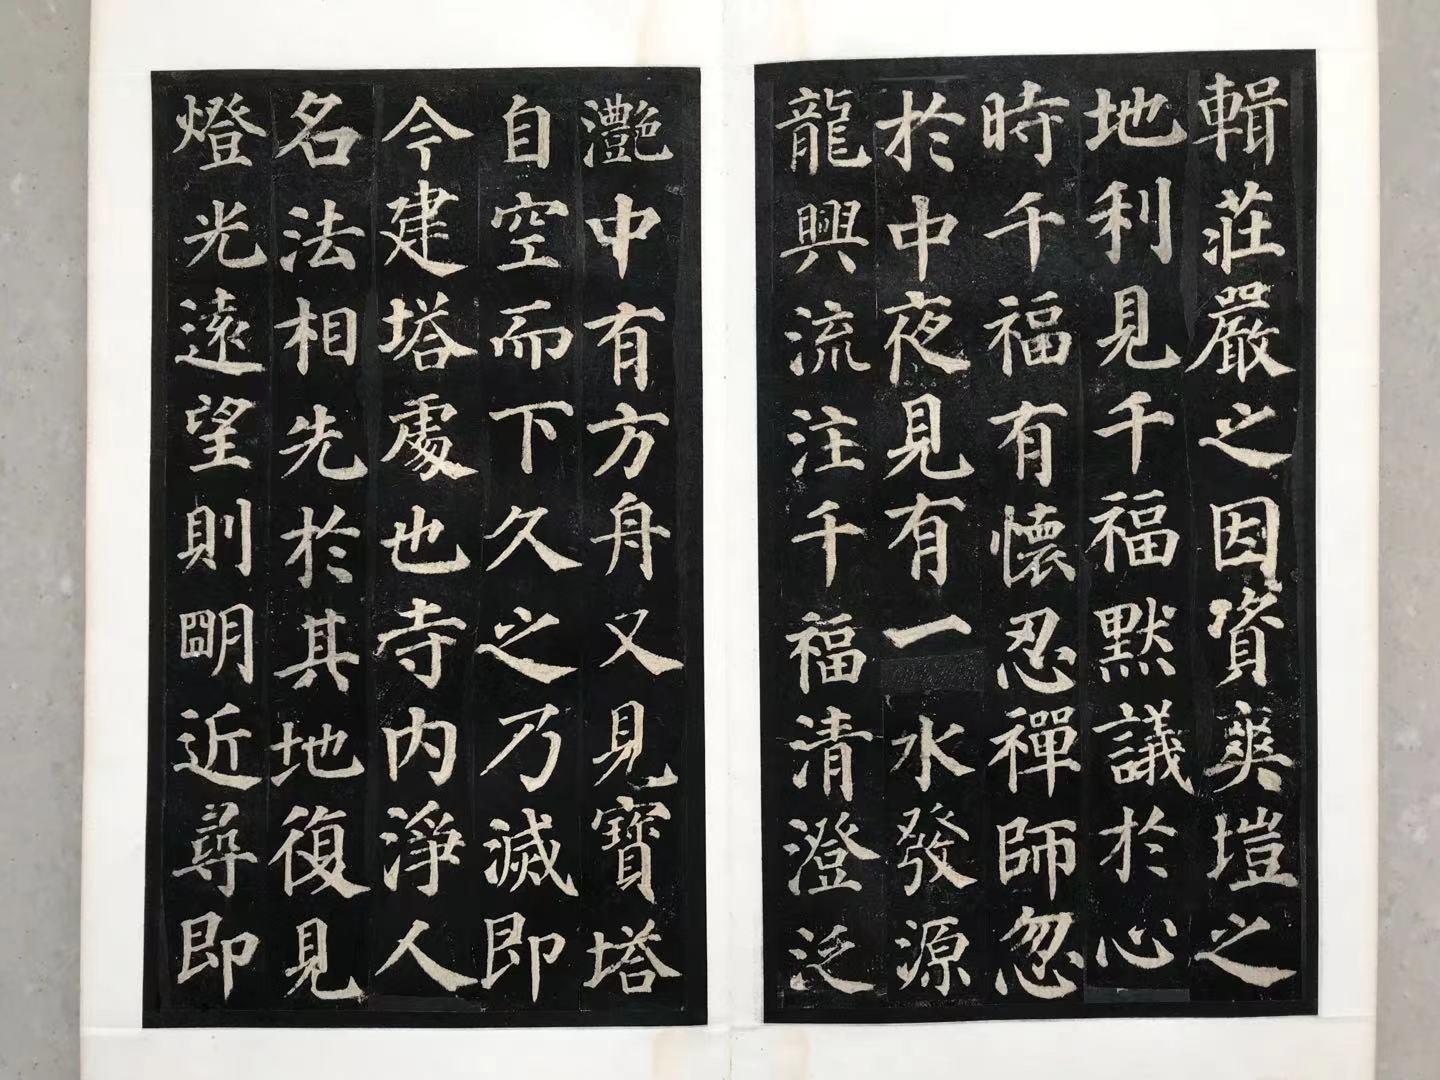 輯莊嚴之因資爽塏之
地利見千福默議於心
時千福有懷忍禪師忽
於中夜見有一水發源
龍興流注千福清澄泛
灔中有方舟又見寶塔
自空而下久之乃滅即
今建塔處也寺内淨人
名法相先於其地復見
燈光遠望則明近尋即